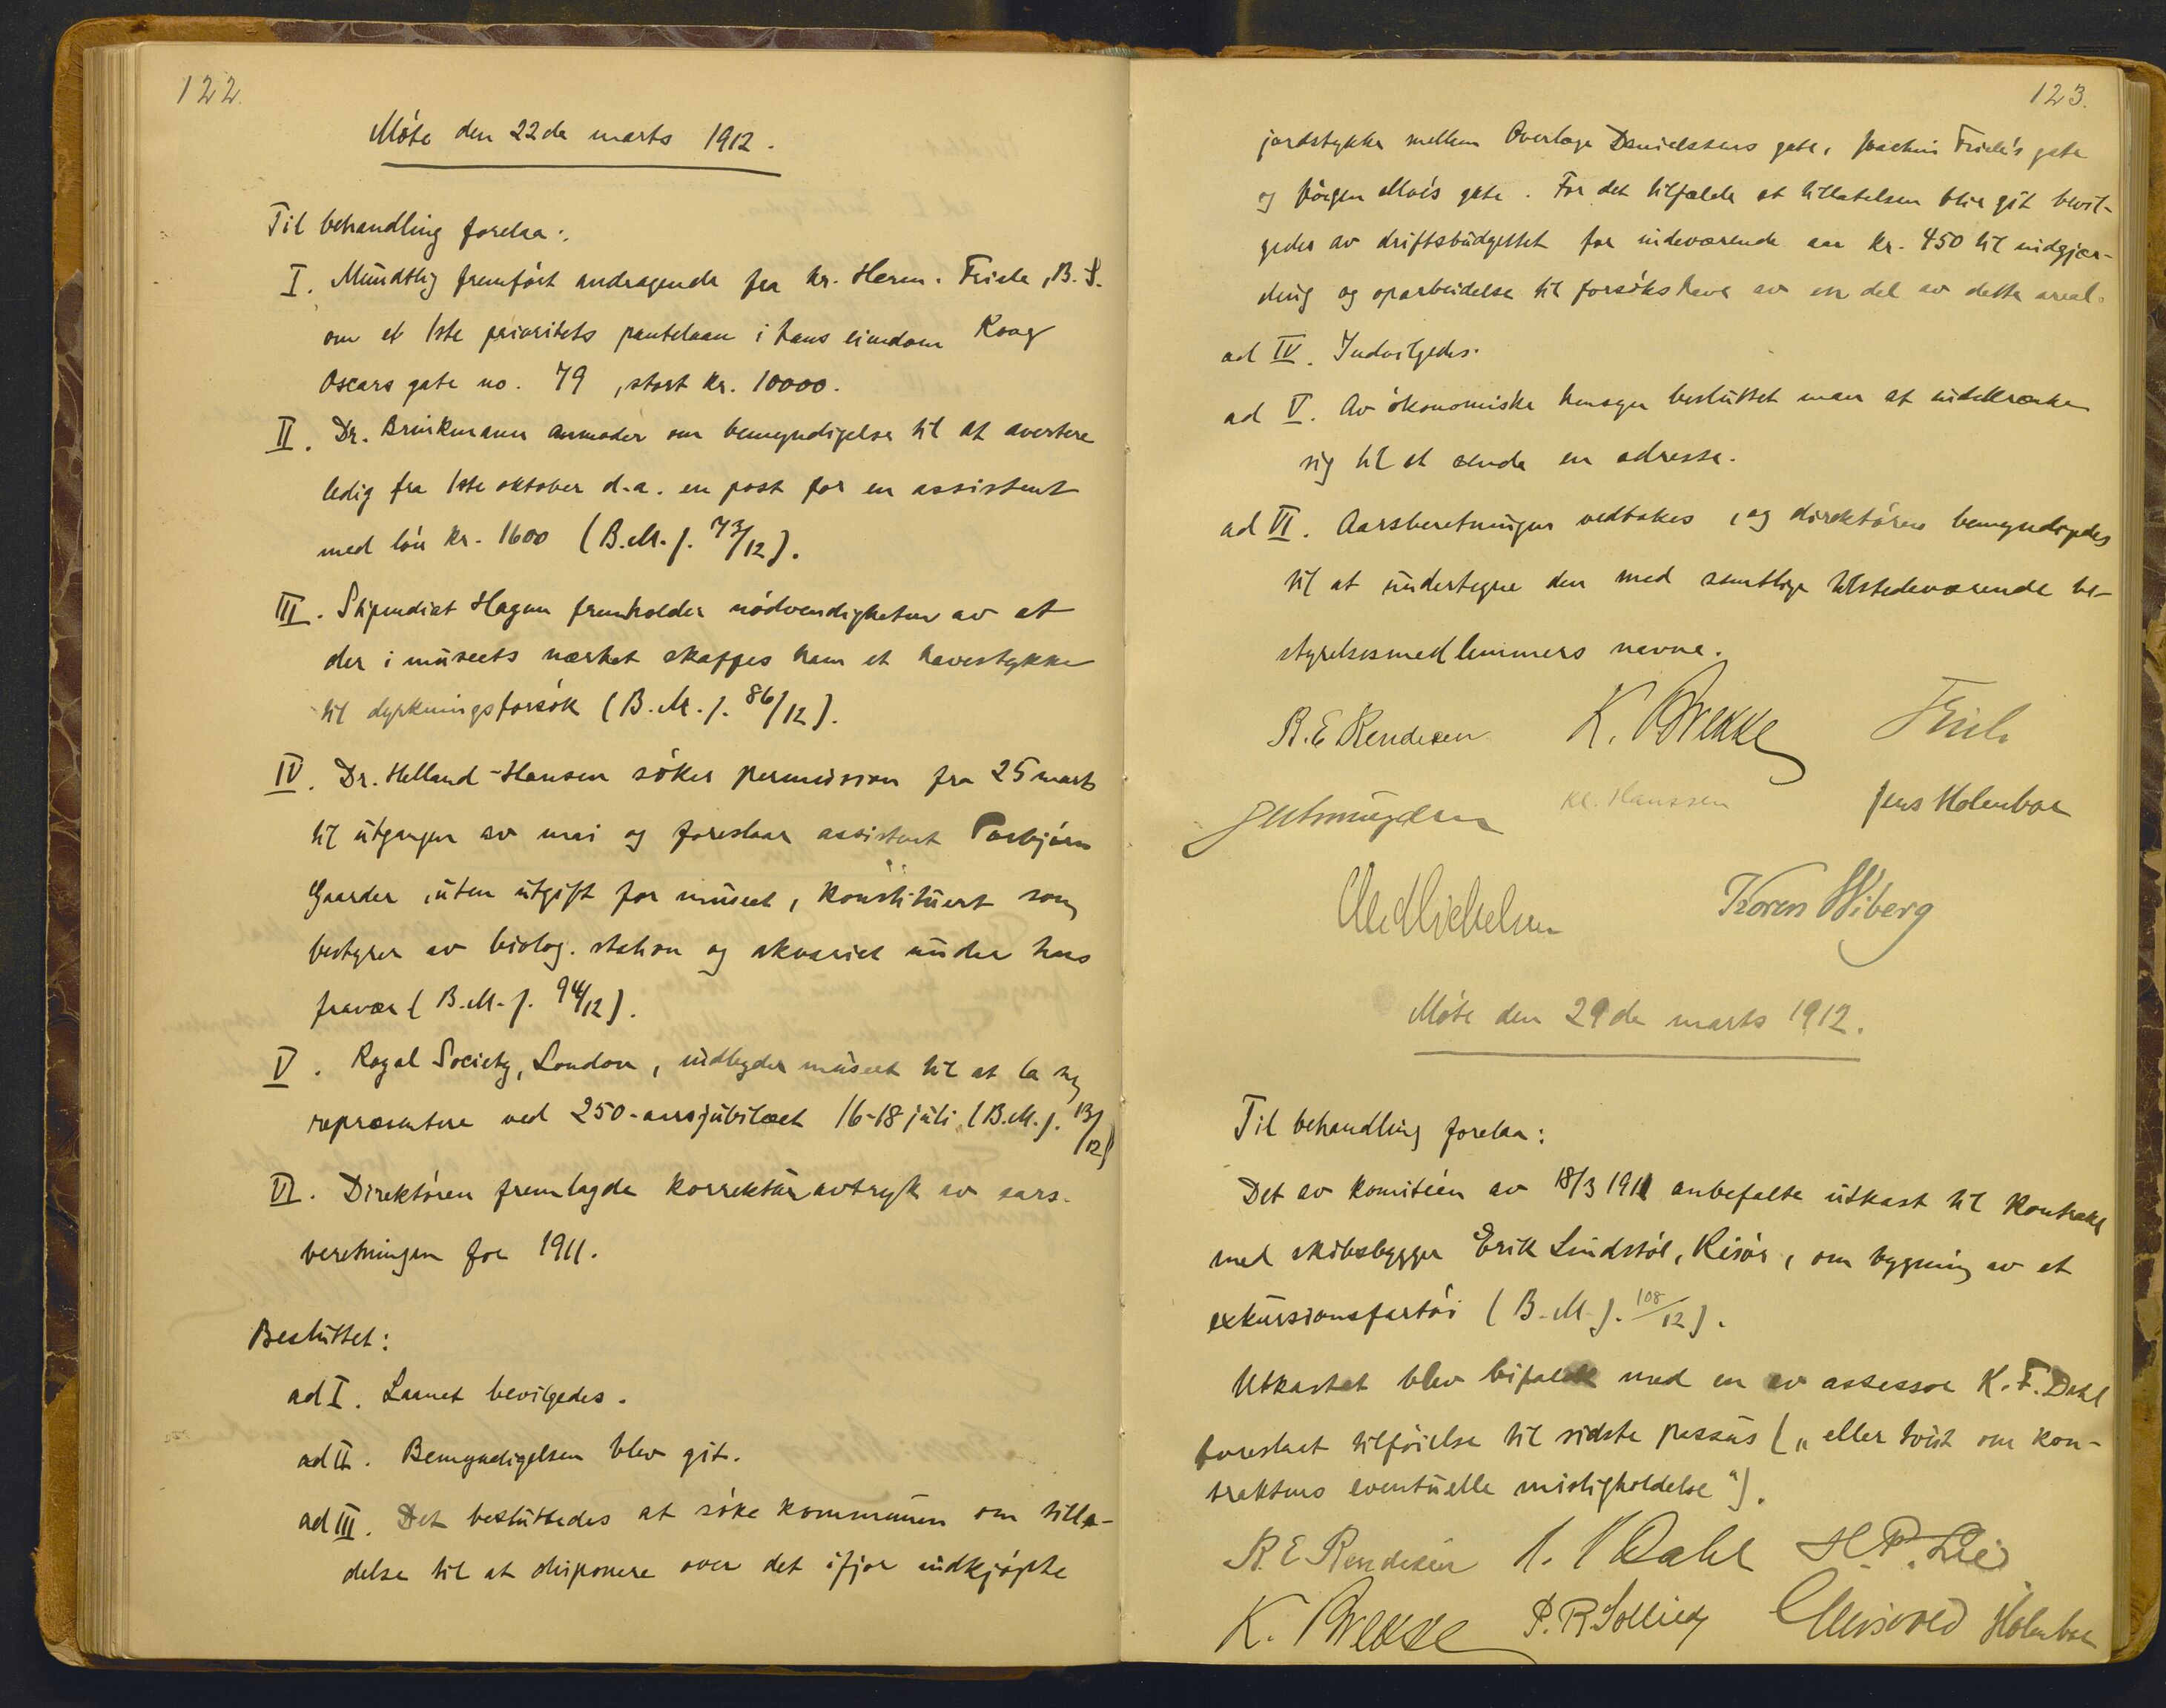 122.
Møte den 22de marts 1912.
Til behandling forelaa:
I. Mundtlig fremført andragende fra hr. Herm. Friele, B. S.
om et 1ste prioritets pantelaan i hans eiendom Kong
Oscars gate no. 79, stort kr. 10000.
II. Dr. Brinkmann anmoder om bemyndigelse til at avertere
ledig fra 1ste oktober d.a. en post for en assistent
med løn kr. 1600 (B.M.j. 73/12).
III. Stipendiat Hagem fremholder nødvendigheten av at
der i museets nærhet skaffes ham et havestykke
til dyrkningsforsøk (B.M.j. 86/12).
IV. Dr. Helland-Hansen søker permission fra 25 marts
til utgangen av mai og foreslaar assistent Torbjørn
Gaarder, uten utgift for museet, konstituert som
bestyrer av biolog. station og akvariet under hans
fravær (B.M.j. 94/12).
V. Royal Society, London, indbyder museet til at la sig
repræsentere ved 250-aarsjubilæet 16-18 juli (B.M.j. 13/12)
VI. Direktøren fremlagde korrekturavtryk av aars-
beretningen for 1911.
Besluttet:
ad I. Laanet bevilgedes.
ad II. Bemyndigelsen blev git.
ad III. Det besluttedes at søke kommunen om tilla-
delse til at disponere over det ifjor indkjøpte
123.
jordstykke mellem Overlæge Danielsens gate, Joachim Friele's gate
og Jørgen Moe's gate. For det tilfælde at tillatelsen blir git bevil-
gedes av driftsbudgettet for indeværende aar kr. 450 til indgjær-
ding og oparbeidelse til forsøkshave av en del av dette areal.
ad IV. Indvilgedes.
ad V. Av økonomiske hensyn besluttet man at indskrænke
sig til at sende en adresse.
ad VI. Aarsberetningen vedtokes, og direktøren bemyndigedes
til at undertegne den med samtlige tilstedeværende be-
styrelsesmedlemmers navne.
R. E. Rendesen K. Brekke Friele
Kl. Hanssen Jens Holmboe
Chr Michelsen Koren Wiberg
Møte den 29de marts 1912.
Til behandling forelaa:
Det av komitéen av 18/3 1911 anbefalte utkast til kontrakt
med skibsbygger Erik Lindstøl, Risør, om bygning av et
exkursionsfartøi (B.M.j. 108/12).
Utkastet blev bifaldt med en av assessor K. F. Dahl
foreslaat tilføielse til sidste passus („eller tvist om kon-
traktens eventuelle misligholdelse“).
R. E. Rendesen Dahl H. P. Lie
K. Brekke P. R. Sollied Holmboe